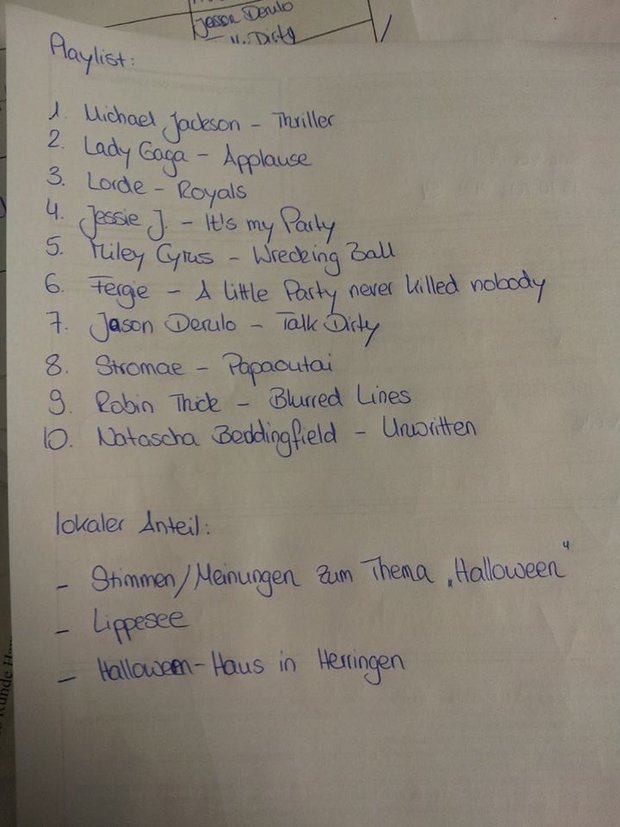 Jason Derulo
Dirty
Playlist:
1. Michael Jackson - Thriller
2. Lady Gaga - Applause
3. Lorde - Royals
4. Jessie J. - It's my Party
5. Miley Cyrus - Wrecking Ball
6. Fergie - A little Party never killed nobody
7. Jason Derulo - Talk Dirty
8. Stromae - Papaoutai
9. Robin Thick - Blurred Lines
10. Natascha Beddingfield - Unwritten
lokaler Anteil:
- Stimmen/Meinungen zum Thema „Halloween"
- Lippesee
- Halloween-Haus in Herringen